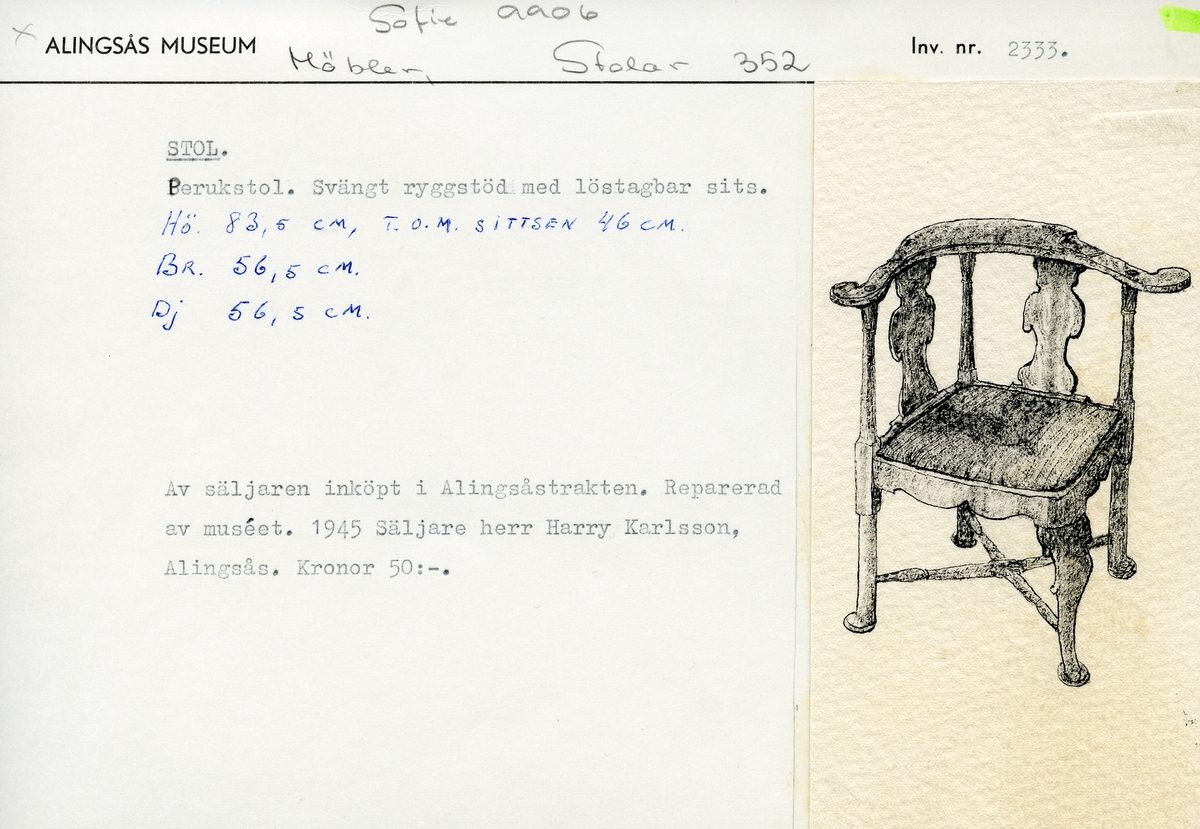 Sofie 9906
x ALINGSÅS MUSEUM Möbler, Stolar 352 Inv. nr. 2333.
STOL.
Perukstol. Svängt ryggstöd med löstagbar sits.
Hö. 83,5 CM, T.O.M. SITTSEN 46 CM.
BR. 56,5 CM.
Dj 56,5 CM.
Av säljaren inköpt i Alingsåstrakten. Reparerad
av muséet. 1945 Säljare herr Harry Karlsson,
Alingsås. Kronor 50:-.